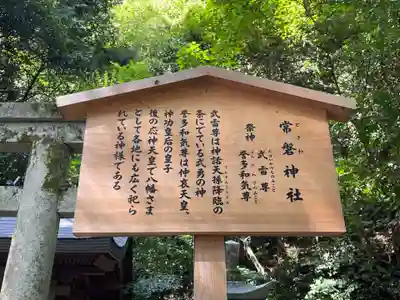 常磐神社
祭神
武雷尊
誉多和気尊
武雷尊は神話天孫降臨の
条にでている武勇の神
誉多和気尊は仲哀天皇、
神功皇后の皇子
後の応神天皇で八幡さま
として各地にも広く祀ら
れている神様である